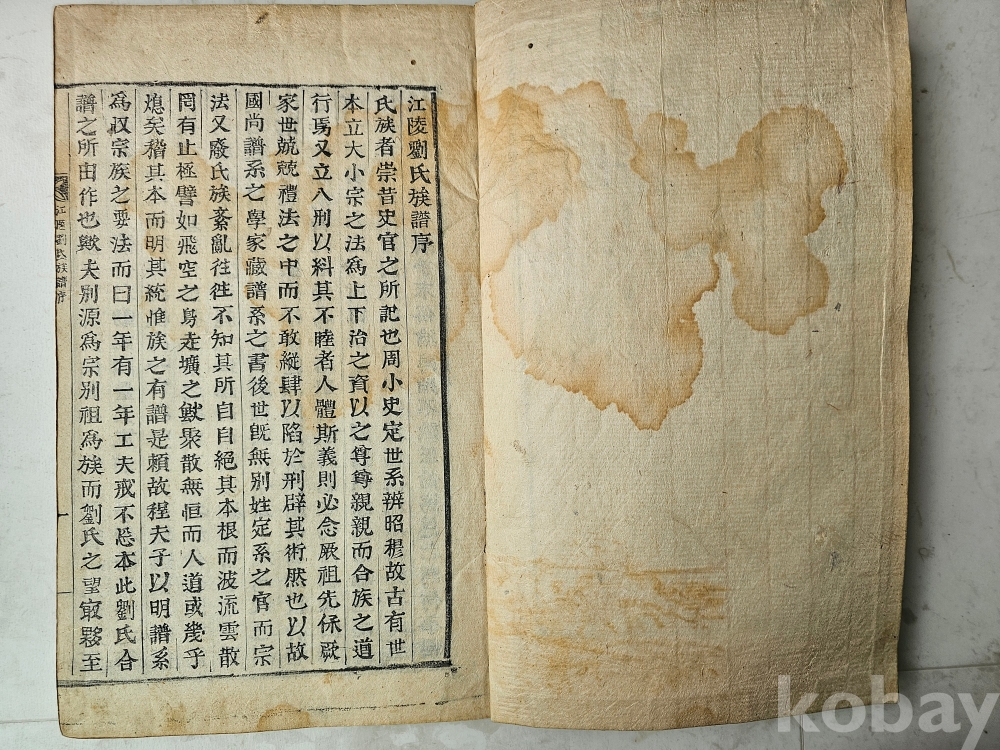 江陵劉氏族譜序
氏族者崇昔史官之所記也周小史定世系辨昭穆故古有世
本立大小宗之法爲上下治之資以之尊尊親親而合族之道
行焉又立八刑以糾其不睦者人體斯義則必念厥祖先保厥
家世兢兢禮法之中而不敢縱肆以陷於刑辟其術然也以故
國尚譜系之學家藏譜系之書後世旣無別姓定系之官而宗
法又廢氏族紊亂往往不知其所自自絕其本根而波流雲散
罔有止極譬如飛空之鳥走壙之獸聚散無恒而人道或幾乎
熄矣稽其本而明其統惟族之有譜是賴故程夫子以明譜系
爲収宗族之要法而曰一年有一年工夫戒不忘本此劉氏合
譜之所由作也歟夫別源爲宗別祖爲族而劉氏之望最夥至
江陵劉氏族譜序
kobay